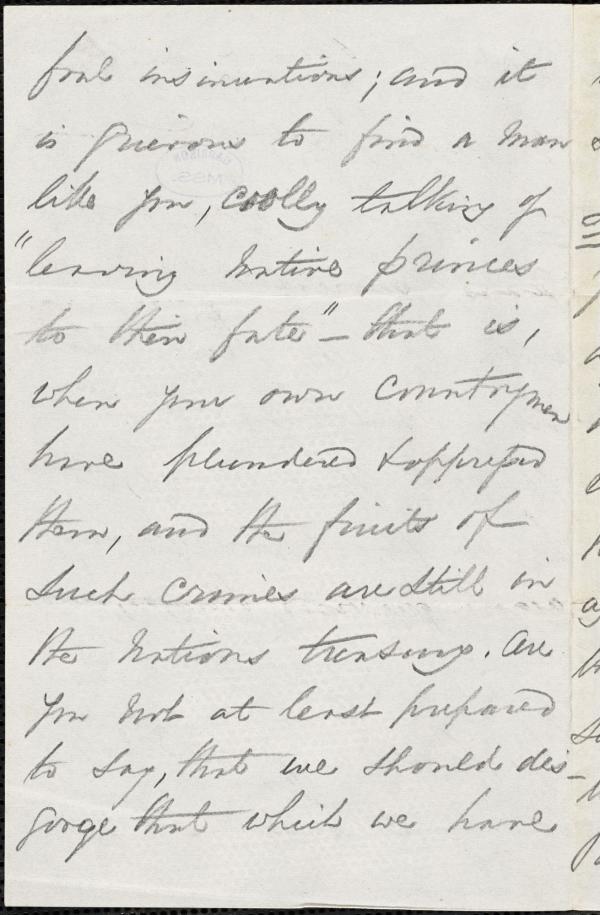 foul insinuations; and it
is grievous to find a man
like you, coolly talking of
"leaving Native princes
to their fate" — that is,
when your own Countrymen
have plundered & oppressed
them, and the fruits of
such crimes are still in
the Nations treasury. Are
you not at least prepared
to say, that we should dis-
gorge that which we have